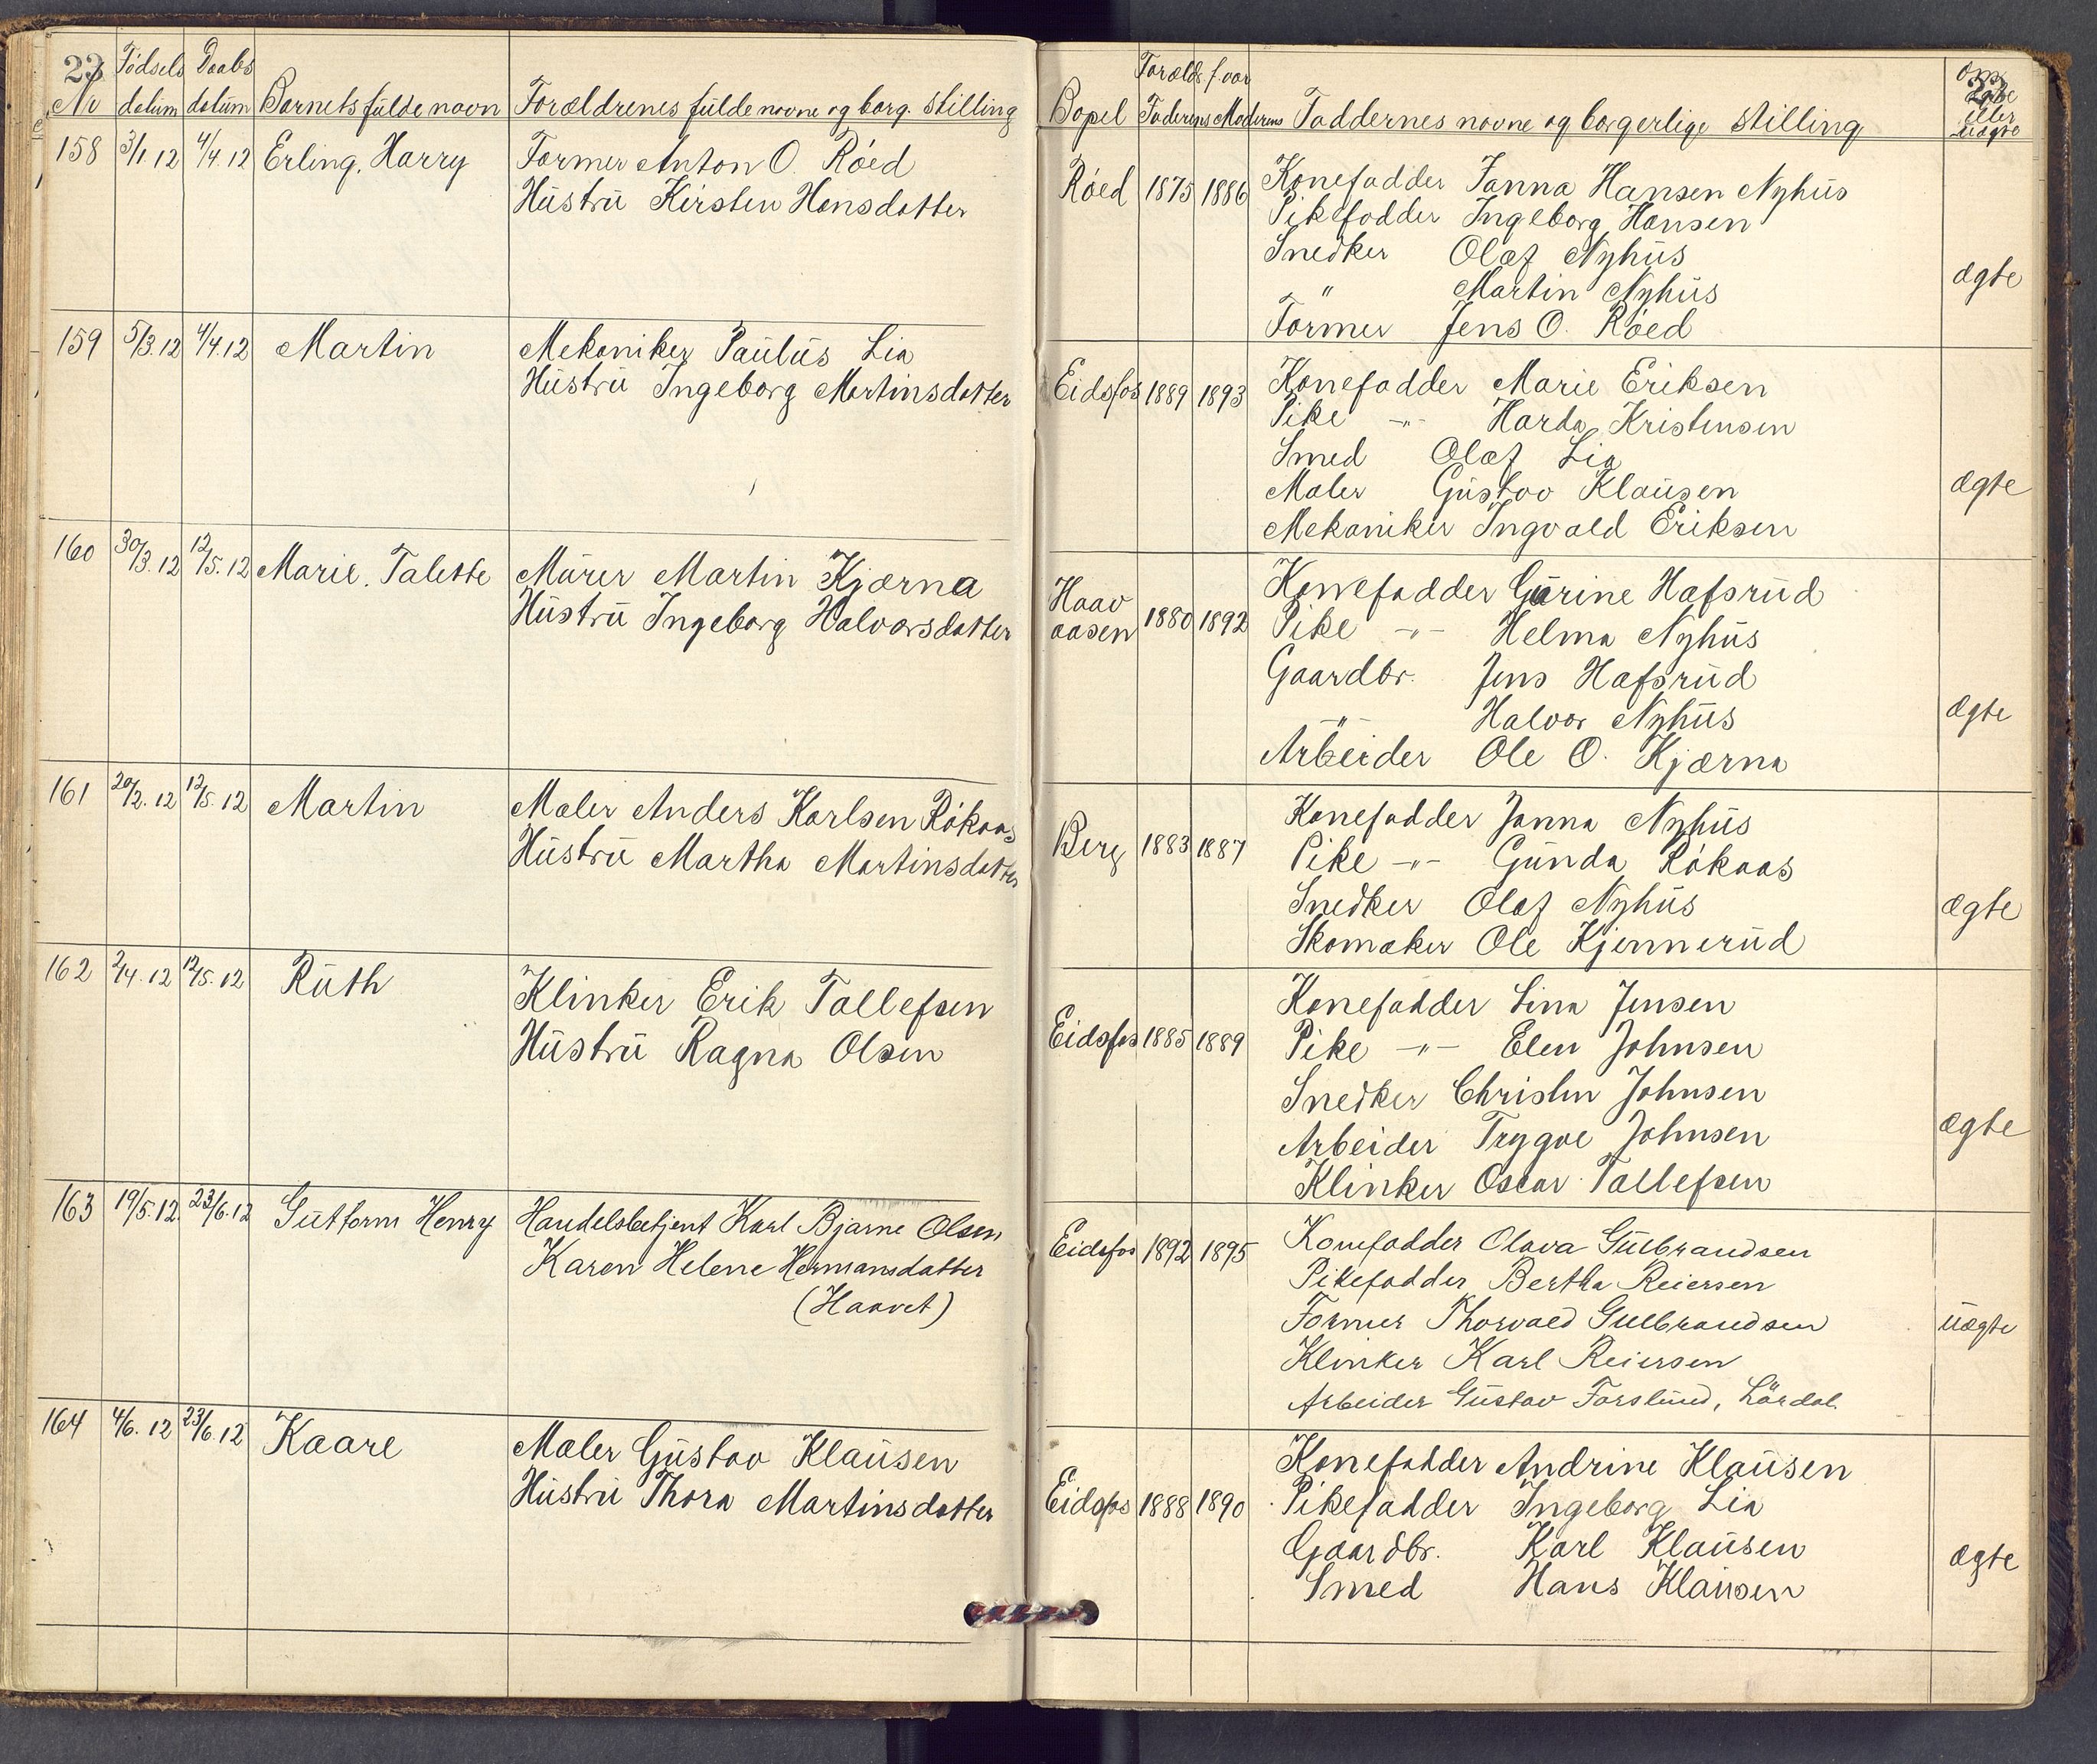 23
Nr
Fødsels
datum
Daabs
datum
Barnets fulde navn
Forældrenes fulde navne og borg. stilling
158 3/1 12 4/4.12 Erling. Harry Former Anton O. Røed
Hustru Kirsten Hansdatter
159 5/3.12 4/4.12 Martin Mekaniker Paulus Lia
Hustru Ingeborg Martinsdatter
160 30/3.12 12/5.12 Marie. Talette Murer Martin Kjærna
Hustru Ingeborg Halvorsdatter
161 20/2.12 12/5.12 Martin Maler Anders Karlsen Rökaas
Hustru Martha Martinsdatter
162 2/4.12 12/5.12 Ruth Klinker Erik Tallefsen
Hustru Ragna Olsen
163 19/5.12. 23/6.12 Guttorm Henry Handelsbetjent Karl Bjarne Olsen
Karen Helene Hermansdatter
(Haavet)
164 4/6.12 23/6.12 Kaare Maler Gustav Klausen
Hustru Thora Martinsdatter
Bopel
Foræld. f. aar
Faderens Moderens
Faddernes navne og borgerlige stilling
om
ægte
eller
uægte
Røed 1875 1886 Konefadder Janna Hansen Nyhus
Pikefadder Ingeborg Hansen
Snedker Olaf Nyhus
" Martin Nyhus
Former Jens O. Røed
ægte
Eidsfos 1889 1893 Konefadder Marie Eriksen
Pike -"- Harda Kristensen
Smed Olaf Lia
Maler Gustav Klausen
Mekaniker Ingvald Eriksen
ægte
Haav
aasen 1880 1892 Konefadder Gurine Hafsrud
Pike -"- Helma Nyhus
Gaardbr. Jens Hafsrud
-"- Halvor Nyhus
Arbeider Ole O. Kjærna
ægte
Berg 1883 1887 Konefadder Janna Nyhus
Pike -"- Gunda Rökaas
Snedker Olaf Nyhus
Skomaker Ole Kjennerud
ægte
Eidsfos 1885 1889 Konefadder Lina Jensen
Pike -"- Elen Johnsen
Snedker Christen Johnsen
Arbeider Trygve Johnsen
Klinker Oscar Tallefsen
ægte
Eidsfos 1892 1895 Konefadder Olava Gulbrandsen
Pikefadder Bertha Reiersen
Former Thorvald Gulbrandsen
Klinker Karl Reiersen
Arbeider Gustav Forslund, Lördal.
uægte
Eidsfos 1888 1890 Konefadder Andrine Klausen
Pikefadder Ingeborg Lia
Gaardbr. Karl Klausen
Smed Hans Klausen
ægte